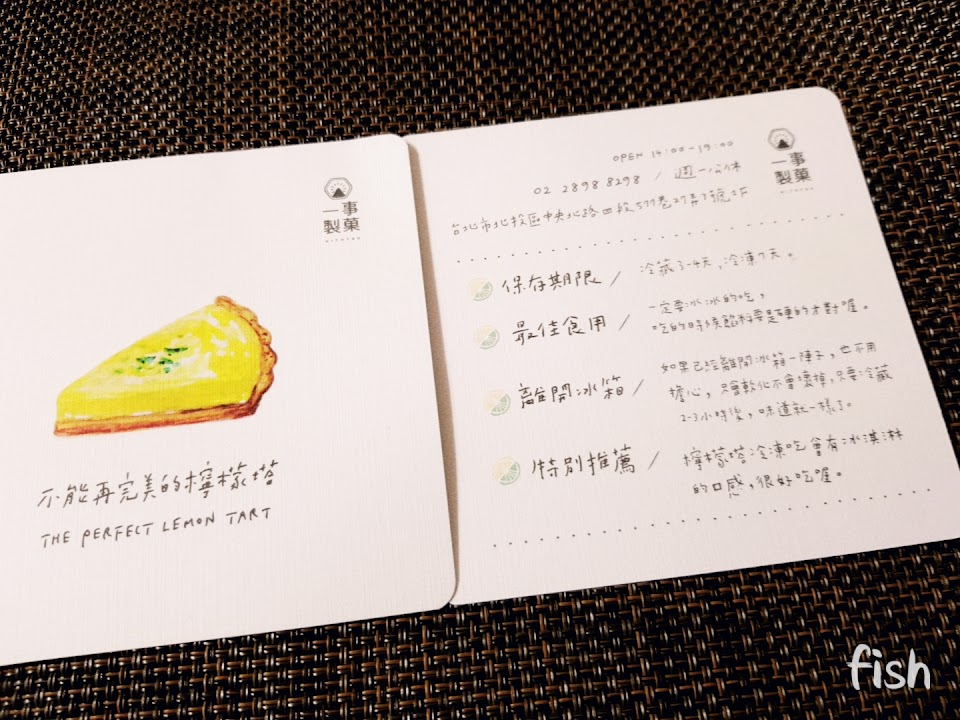 一事
製菓
不能再完美的檸檬塔
THE PERFECT LEMON TART
一事
製菓
OPEN 14:00-19:00
02 2898 8298 / 週一公休
台北市北投區中央北路四段577巷27弄7號1F
保存期限 / 冷藏3-4天，冷凍7天。
最佳食用 / 一定要冰冰的吃，
吃的時候餡料要是硬的才對喔。
離開冰箱 / 如果已經離開冰箱一陣子，也不用
擔心，只會軟化不會壞掉，只要冷藏
2-3小時後，味道就一樣了。
特別推薦 / 檸檬塔冷凍吃會有冰淇淋
的口感，很好吃喔。
fish